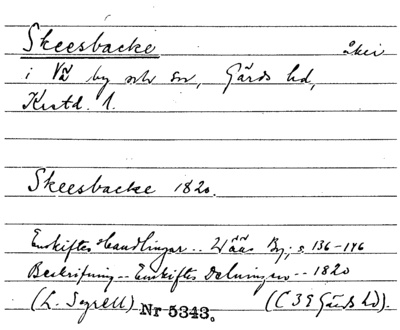 Skeesbacke åker
i Vä by och sn, Gärds hd,
Krstd. l.
Skeesbacke 1820.
Enskiftes Handlingar .. Wääs By; s 136-146
Beskrifning -- Enskiftes Delningen -- 1820
(L. Segrell) Nr 5343. (C 38 Gärds hd).